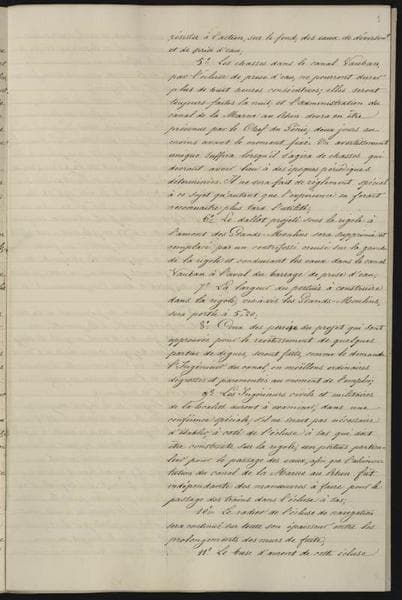 résister à l'action, sur le fond, des eaux de déversemt
et de prise d'eau;
5° Les chasses dans le canal Vauban,
par l'écluse de prise d'eau, ne pourront durer
plus de huit heures consécutives; elles seront
toujours faites la nuit, et l'administration du
canal de la Marne au Rhin devra en être
prévenue par le Chef du Génie, deux jours au
moins avant le moment fixé. Un avertissement
unique suffira lorsqu'il s'agira de chasses qui
devront avoir lieu à des époques périodiques
déterminées. Il ne sera fait de règlement spécial
à ce sujet qu'autant que l'expérience en ferait
reconnaître plus tard l'utilité;
6° Le dallot projeté sous la rigole à
l'amont des Grands-Moulins sera supprimé et
remplacé par un contrefossé creusé sur la gauche
de la rigole et conduisant les eaux dans le canal
Vauban à l'aval du barrage de prise d'eau;
7° La largeur du pertuis à construire
dans la rigole, vis-à-vis les Grands-Moulins,
sera portée à 5,20;
8° Ceux des perrés du projet qui sont
approuvés pour le revêtement de quelques
parties de digues, seront faits, comme le demande
l'Ingénieur du canal, en moellons ordinaires
dégrossis et parementés au moment de l'emploi;
9° Les Ingénieurs civils et militaires
de la localité auront à examiner, dans une
conférence spéciale, s'il ne serait pas nécessaire
d'établir, à côté de l'écluse à sas que doit
être construite sur la rigole, un pertuis particu-
lier pour le passage des eaux, afin que l'alimen-
tation du canal de la Marne au Rhin fut
indépendante des manœuvres à faire pour le
passage des trains dans l'écluse à sas;
10° Le radier de l'écluse de navigation
sera continué sur toute son épaisseur entre les
prolongements des murs de fuite;
11° Le buse d'amont de cette écluse